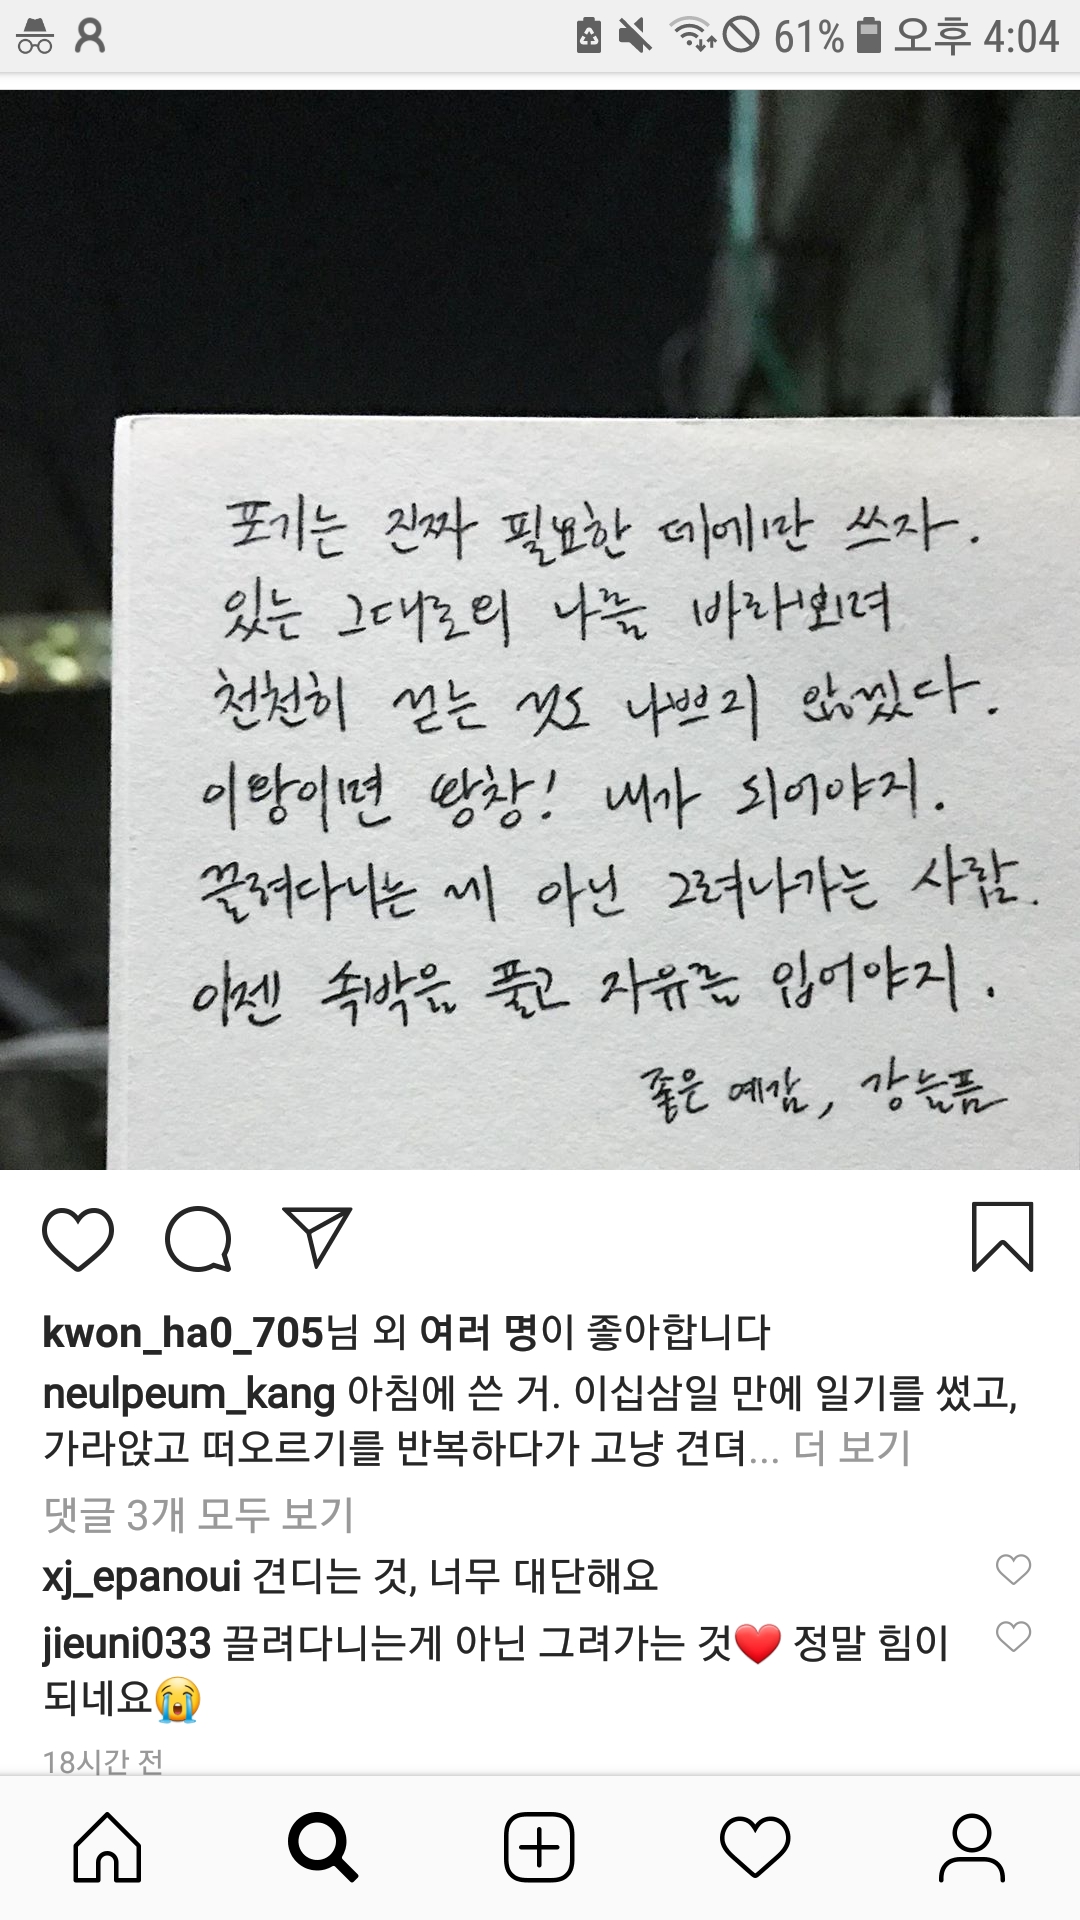 61% 오후 4:04
포기는 진짜 필요한 데에만 쓰자.
있는 그대로의 나를 바라보려
천천히 걷는 것도 나쁘지 않겠다.
이왕이면 왕창! 내가 되어야지.
끌려다니는 게 아닌 그려나가는 사람.
이젠 속박을 풀고 자유를 입어야지.
좋은 예감, 강늘픔
kwon_ha0_705님 외 여러 명이 좋아합니다
neulpeum_kang 아침에 쓴 거. 이십삼일 만에 일기를 썼고,
가라앉고 떠오르기를 반복하다가 고냥 견뎌... 더 보기
댓글 3개 모두 보기
xj_epanoui 견디는 것, 너무 대단해요
jieuni033 끌려다니는게 아닌 그려가는 것❤️ 정말 힘이
되네요😭
18시간 전